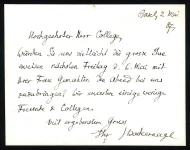 Basel, 2 Mai
Hochgeehrter Herr College,
Würden Sie uns vielleicht die grosse Ehre
erweisen nächsten Freitag d. 6. Mai mit
Ihrer Frau Gemahlin den Abend bei uns
zuzubringen? Wir erwarten einige wenige
Freunde & Collegen.
Mit ergebenstem Gruss
Ihr J Wackernagel